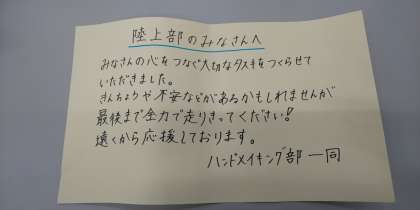 陸上部のみなさんへ
みなさんの心をつなぐ大切なタスキをつくらせて
いただきました。
きんちょうや不安などがあるかもしれませんが
最後まで全力で走りきってください!
遠くから応援しております。
ハンドメイキング部一同